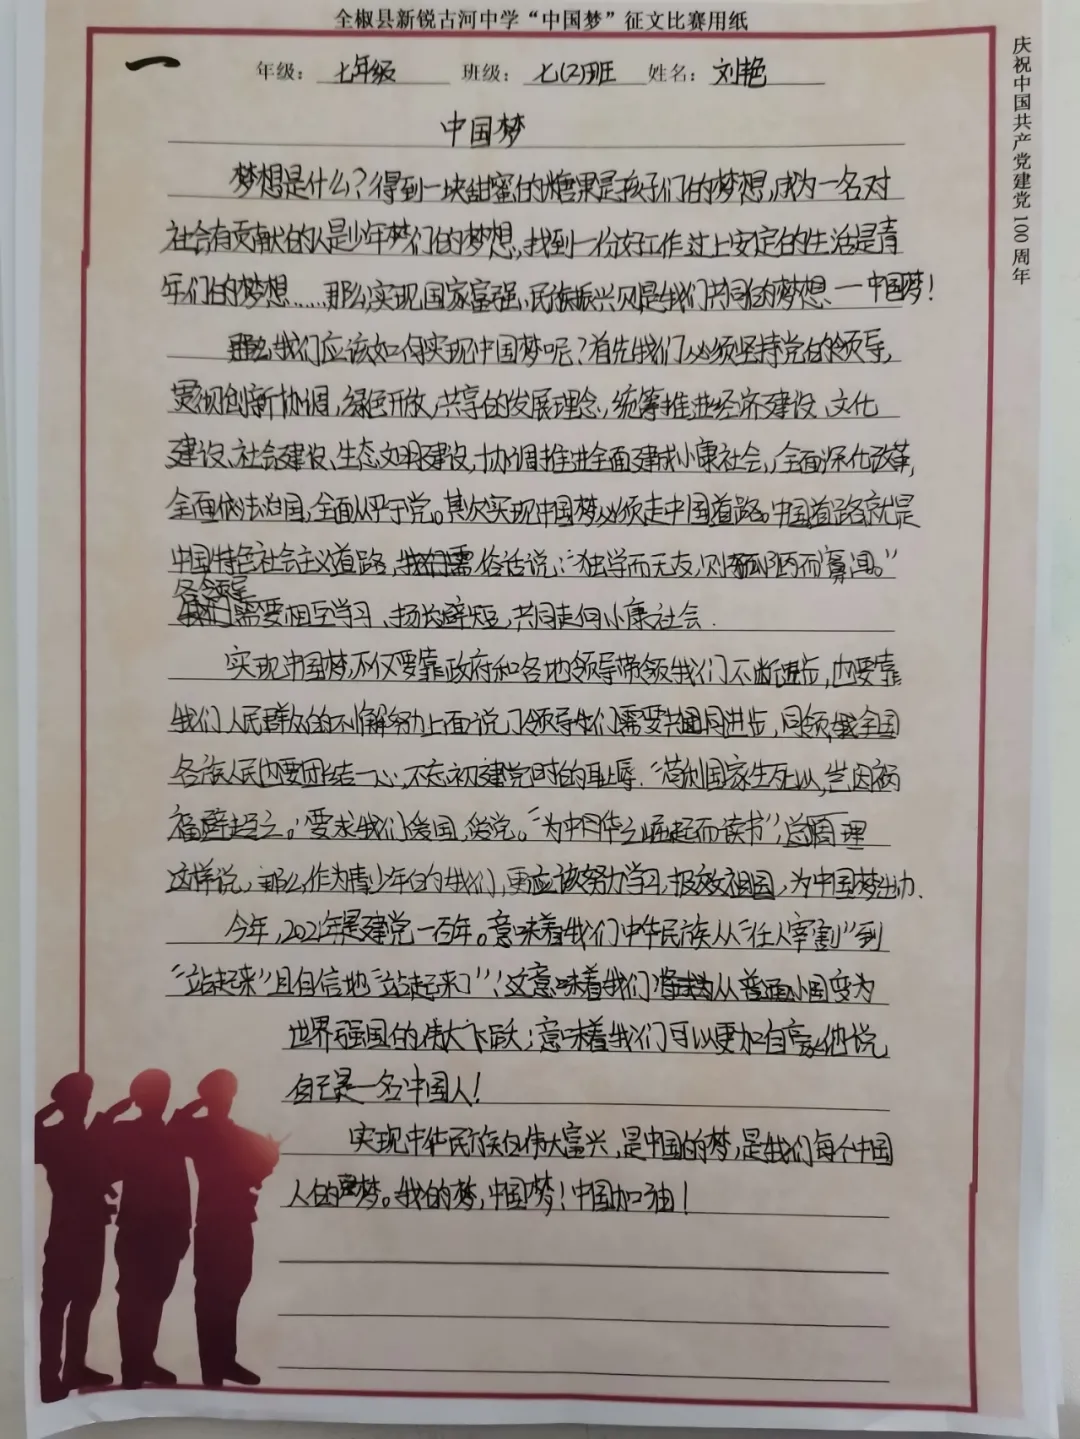 全椒县新锐古河中学“中国梦”征文比赛用纸
庆祝中国共产党建党100周年
一
年级：七年级 班级：七(2)班 姓名：刘艳
中国梦
梦想是什么?得到一块甜蜜的糖果是孩子们的梦想,成为一名对
社会有贡献的人是少年梦们的梦想,找到一份好工作过上安定的生活是青
年们的梦想……那么,实现国家富强、民族振兴则是我们共同的梦想、一中国梦!
那么我们应该如何实现中国梦呢?首先我们必须坚持党的领导,
贯彻创新协调,绿色开放,共享的发展理念,统筹推进经济建设、文化
建设、社会建设、生态文明建设,协调推进全面建成小康社会,全面深化改革,
全面依法治国,全面从严于党。其次实现中国梦必须走中国道路。中国道路就是
中国特色社会主义道路、俗话说:“独学而无友,则孤陋而寡闻。”
各领导
需要相互学习、扬长避短,共同走向小康社会.
实现中国梦,不仅要靠政府和各地领导带领我们不断进步,也要靠
我们人民群众的不懈努力上面说了领导们需要共同进步,同领,全国
各族人民也要团结一心,不忘初建党时的耻辱.“苟利国家生死以,岂因祸
福避趋之。”要求我们爱国,爱党。“为中华之崛起而读书”,总理
这样说,那么,作为青少年的我们,更应该努力学习,报效祖国,为中国梦出力.
今年,2021年是建党一百年。意味着我们中华民族从“任人宰割”到
“站起来”且自信地“站起来了”!这意味着我们从普通小国变为
世界强国的伟大飞跃;意味着我们可以更加自豪地说
自己是一名中国人!
实现中华民族的伟大富兴,是中国的梦,是我们每个中国
人的梦。我的梦,中国梦!中国加油!